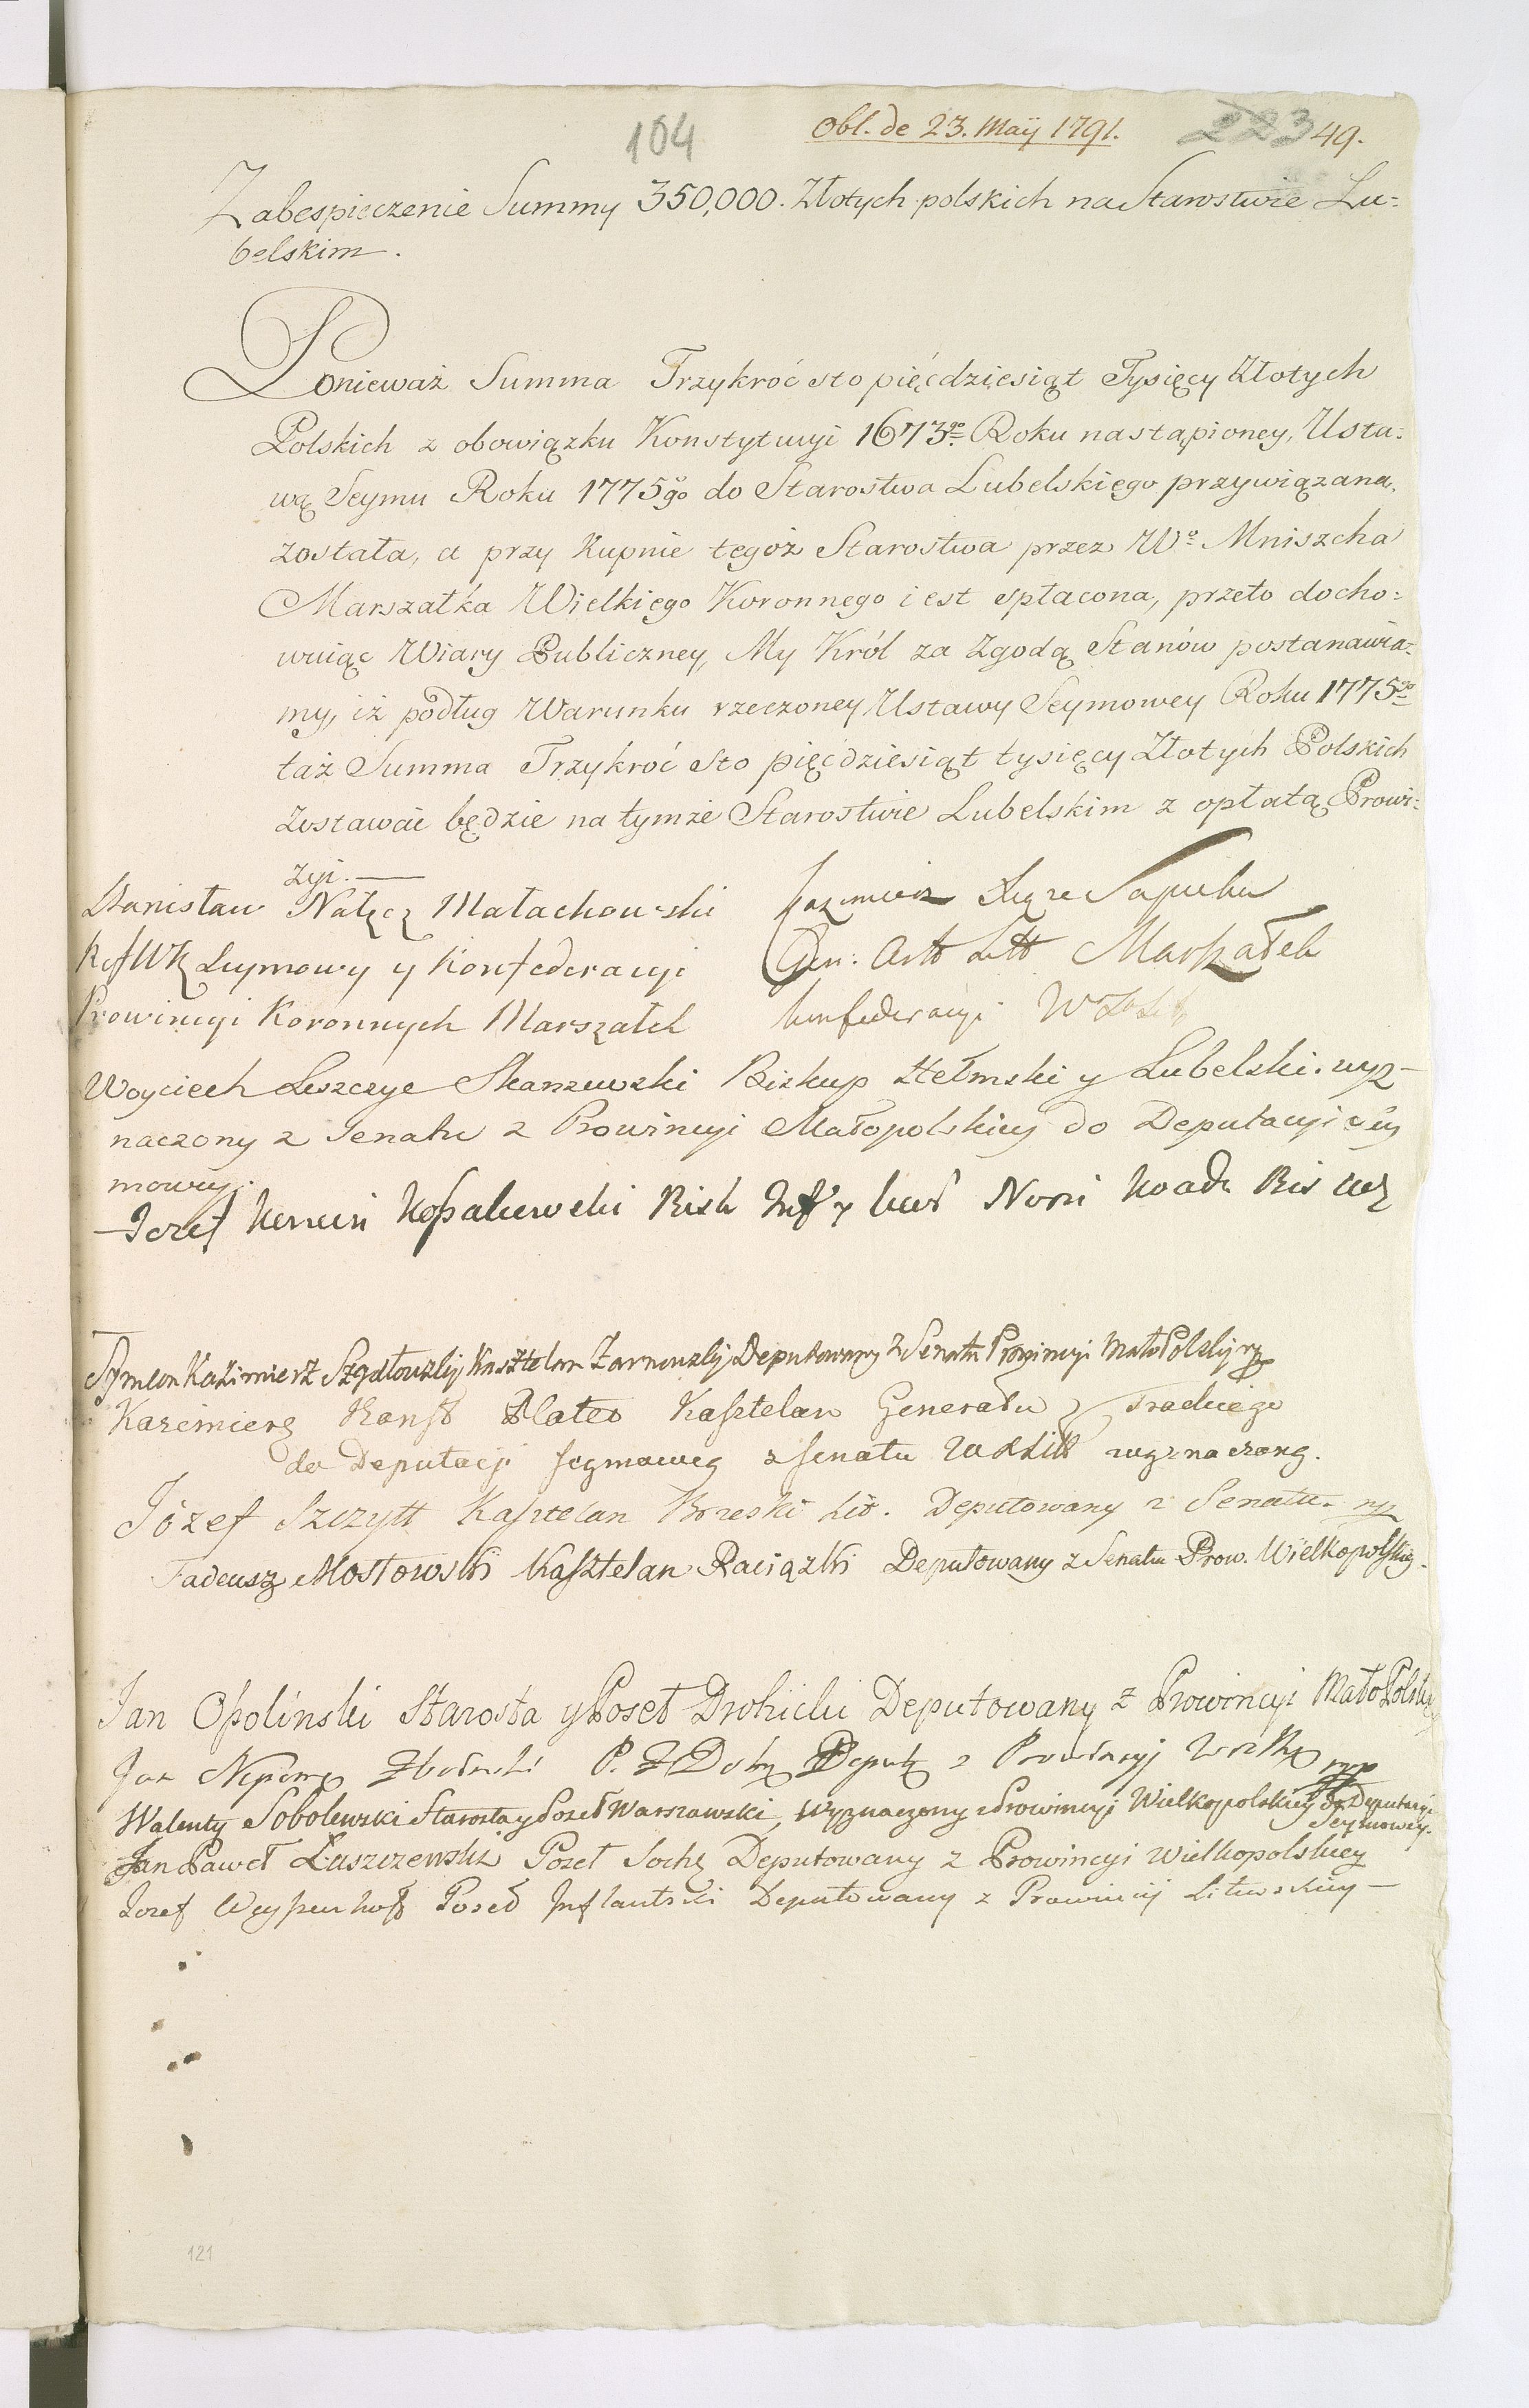 104 Obl. de 23. Maÿ 1791. 223 49.
Zabespieczenie Summy 350,000. Złotych polskich na Starostwie Lu:
belskim.
Ponieważ Summa Trzykroć sto pięćdziesiąt Tysięcy Złotych
Polskich z obowiązku Konstytucyi 1673go Roku nastąpioney, Usta:
wą Seymu Roku 1775go do Starostwa Lubelskiego przywiązana
została, a przy kupnie tegoż Starostwa przez Wo Mniszcha
Marszałka Wielkiego Koronnego iest spłacona, przeto docho:
wuiąc Wiary Publiczney, My Król za Zgodą Stanów postanawia:
my, iż podług Warunku rzeczoney Ustawy Seymowey Roku 1775go
taż Summa Trzykroć Sto pięćdziesiąt tysięcy Złotych Polskich
zostawać będzie na tymże Starostwie Lubelskim z opłatą Prowi:
zyi.
Stanisław Nałęcz Małachowski
Ref WK Seymowy y Konfederacyi
Prowincyi Koronnych Marszałek
Kazimierz Xżę Sapieha
Gen: Artt Litt Marszałek
konfederacyi W
Woyciech Leszczyc Skarszewski Biskup Chełmski y Lubelski. wyz-
naczony z Senatu z Prowincyi Małopolskiey do Deputacyi Sey
mowey.
Jozef Korwin Kossakowski Bisk Inf y Kur Nom Koad Bis Wi
Symeon Kazimierz Szydłowsky Kasztelan Żarnowsky Deputowany z Senatu Prowincyi MałoPolsky mp
Kazimierz Konst Plater Kasztelan Generału Trockiego
do Deputacji seymowey z senatu WXLitt wyznaczony.
Józef Szczytt Kasztelan Brzeski Lit. Deputowany z Senatu mp
Tadeusz Mostowski Kasztelan Raciązki Deputowany z Senatu Prow. Wielkopolskiey.
Jan Opolinski Starosta y Poseł Drohicki Deputowany z Prowincyi MałoPolskiey
Jan Nepom Zboinski P. Z Dob Deput z Prowincyj Wielk mp
Walenty Sobolewski Starosta y Poseł Warszawski, wyznaczony z Prowincyi Wielkopolskiey do Deputacyi
Seymowey.
Jan Paweł Łuszczewski Poseł Soch Deputowany z Prowincyi Wielkopolskiey
Jozef Weyssenhoff Poseł Inflantski Deputowany z Prowincij Litewskiey
121